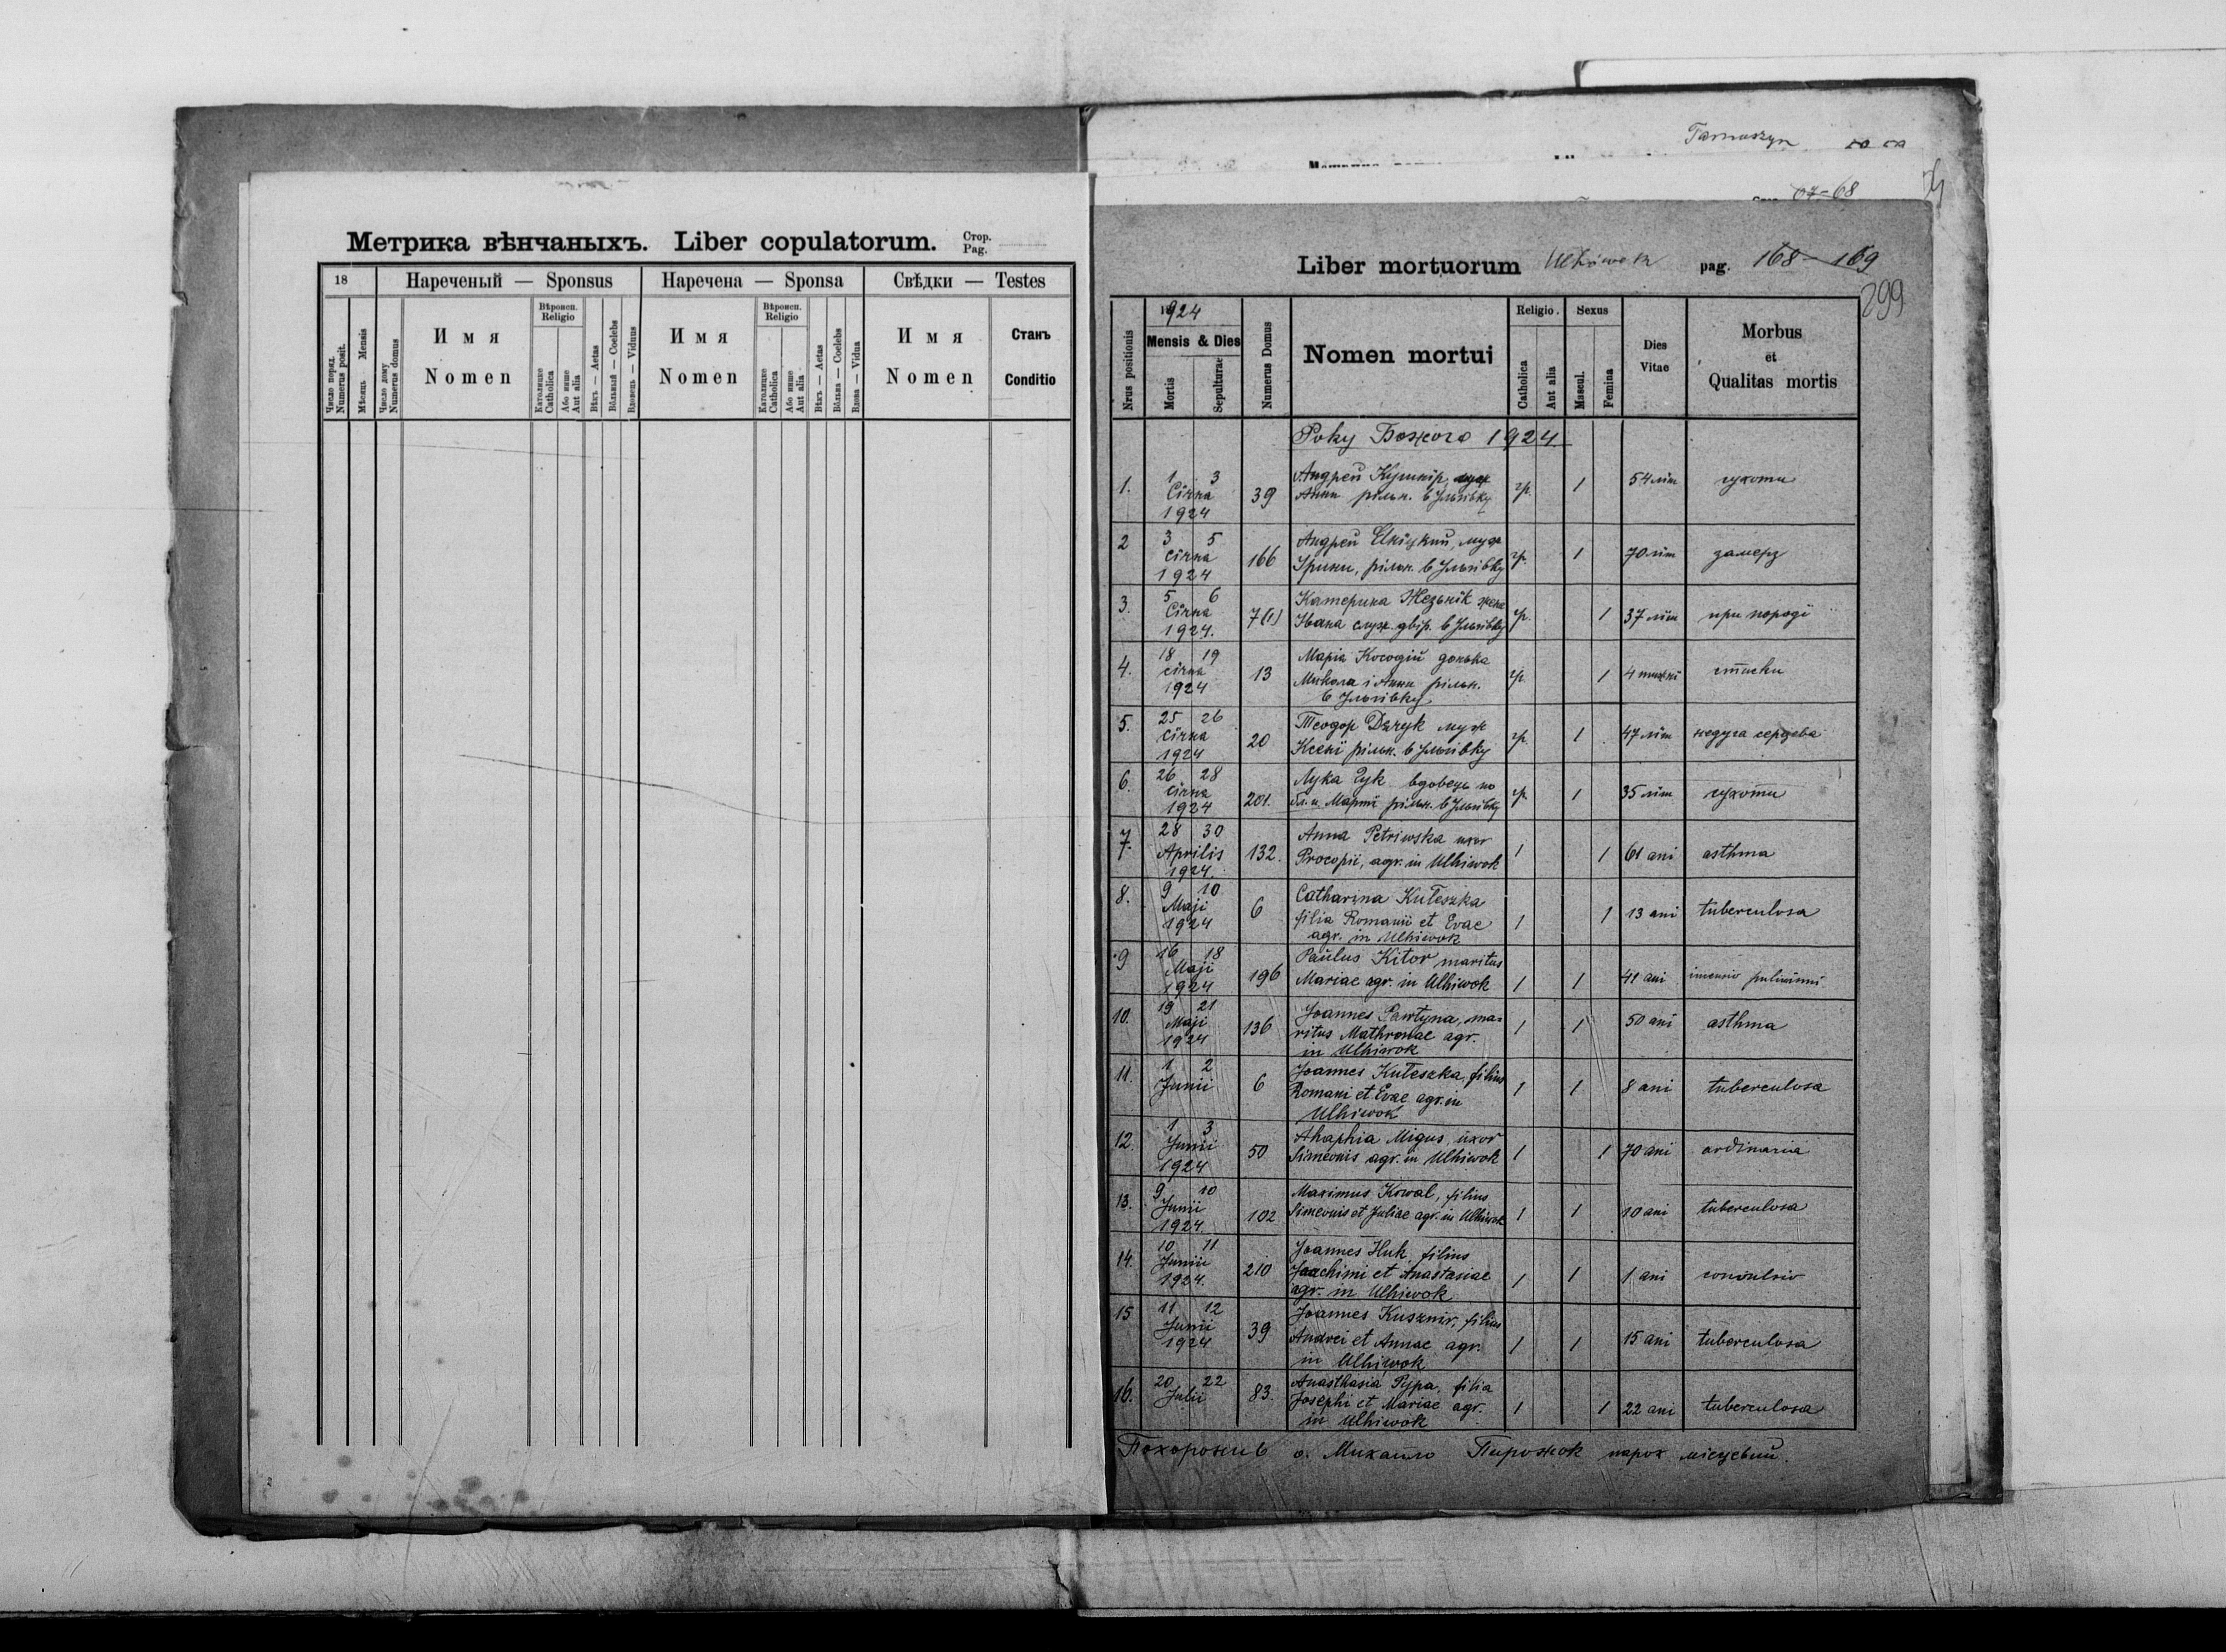 Tarnoszyn
67-68
Метрика вѣнчаныхъ. Liber copulatorum. Стор. Pag.
18
Нареченый — Sponsus
Наречена — Sponsa
Свѣдки — Testes
Число поряд. Numerus posit.
Мѣсяць Mensis
Число дому Numerus domus
Имя Nomen
Вѣроисп. Religio
Католицке Catholica
Або инше Aut alia
Вѣкъ — Aetas
Вôльный — Coelebs
Вдовець — Viduus
Имя Nomen
Вѣроисп. Religio
Католицке Catholica
Або инше Aut alia
Вѣкъ — Aetas
Вôльна — Coelebs
Вдова — Vidua
Имя Nomen
Станъ Conditio
Liber mortuorum Ulhiwek pag. 168-169
299
Nrus positionis
1924
Mensis & Dies
Mortis
Sepulturae
Numerus Domus
Nomen mortui
Religio.
Catholica
Aut alia
Sexus
Mascul.
Femina
Dies Vitae
Morbus et Qualitas mortis
Року Божого 1924
1. 1 3 39 Андрей Кушнір, муж 54 літ сухоти
Січня Анни рільн. в Угнівку гр. 1
1924
2 3 5 Андрей Ількіцкий, муж
січня 166 Ірини, рільн. в гр. 1 70 літ замерз
1924
3. 5 6 Катерина Жезьнік жена
Січня 7(1) Івана служ. двір. в гр. 1 37 літ при породї
1924.
4. 18 19 Марія Косодій донька
січня 13 Микола і Анни рільн. гр. 1 4 стиски
1924
5. 25 26 Теодор Dzryk муж
січня 20 Ксенї рільн. в гр. 1 47 літ недуга серцева
1924
6. 26 28 Лука Гук вдовець по
січня 201. бл. п. Марії рільн. в гр. 1 35 літ сухоти
1924
7. 28 30 Anna Petriwska uxor
Aprilis 132. Procopii, agr. in Ulhiwok 1 1 61 ani asthma
1924.
8. 9 10 Catharina Kuleszka
Maji 6 filia Romanii et Evae 1 1 13 ani tuberculosa
1924 agr. in Ulhiwok
9 16 18 Paulus Kitor maritus
Maji 196 Mariae agr. in Ulhiwok 1 1 41 ani
1924
10. 19 21 Joannes Pawtyna, ma-
Maji 136 ritus Mathronae agr. 1 1 50 ani asthma
1924 in Ulhiwok
11. 1 2 Joannes Kuleszka, filius
Junii 6 Romani et Evae agr. in 1 1 8 ani tuberculosa
Ulhiwok
12. 1 3 Ahaphia Migus, uxor
Junii 50 Simeonis agr. in Ulhiwok 1 1 70 ani ordinaria
1924
13. 9 10 Maximus Kowal, filius
Junii 102 Simeonis et Juliae agr. in Ulhiwok 1 1 10 ani tuberculosa
1924
14. 10 11 Joannes Huk filius
Junii 210 Joachimi et Anastasiae 1 1 1 ani convulsio
1924. agr. in Ulhiwok
15 11 12 Joannes Kusznir, filius
Junii 39 Andrei et Annae agr. 1 1 15 ani tuberculosa
1924 in Ulhiwok
16. 20 22 Anasthasia Pypa, filia
Julii 83. Josephi et Mariae agr. 1 1 22 ani tuberculosa
in Ulhiwok
Похоронив о. Михайло Пирожок парох місцевий.